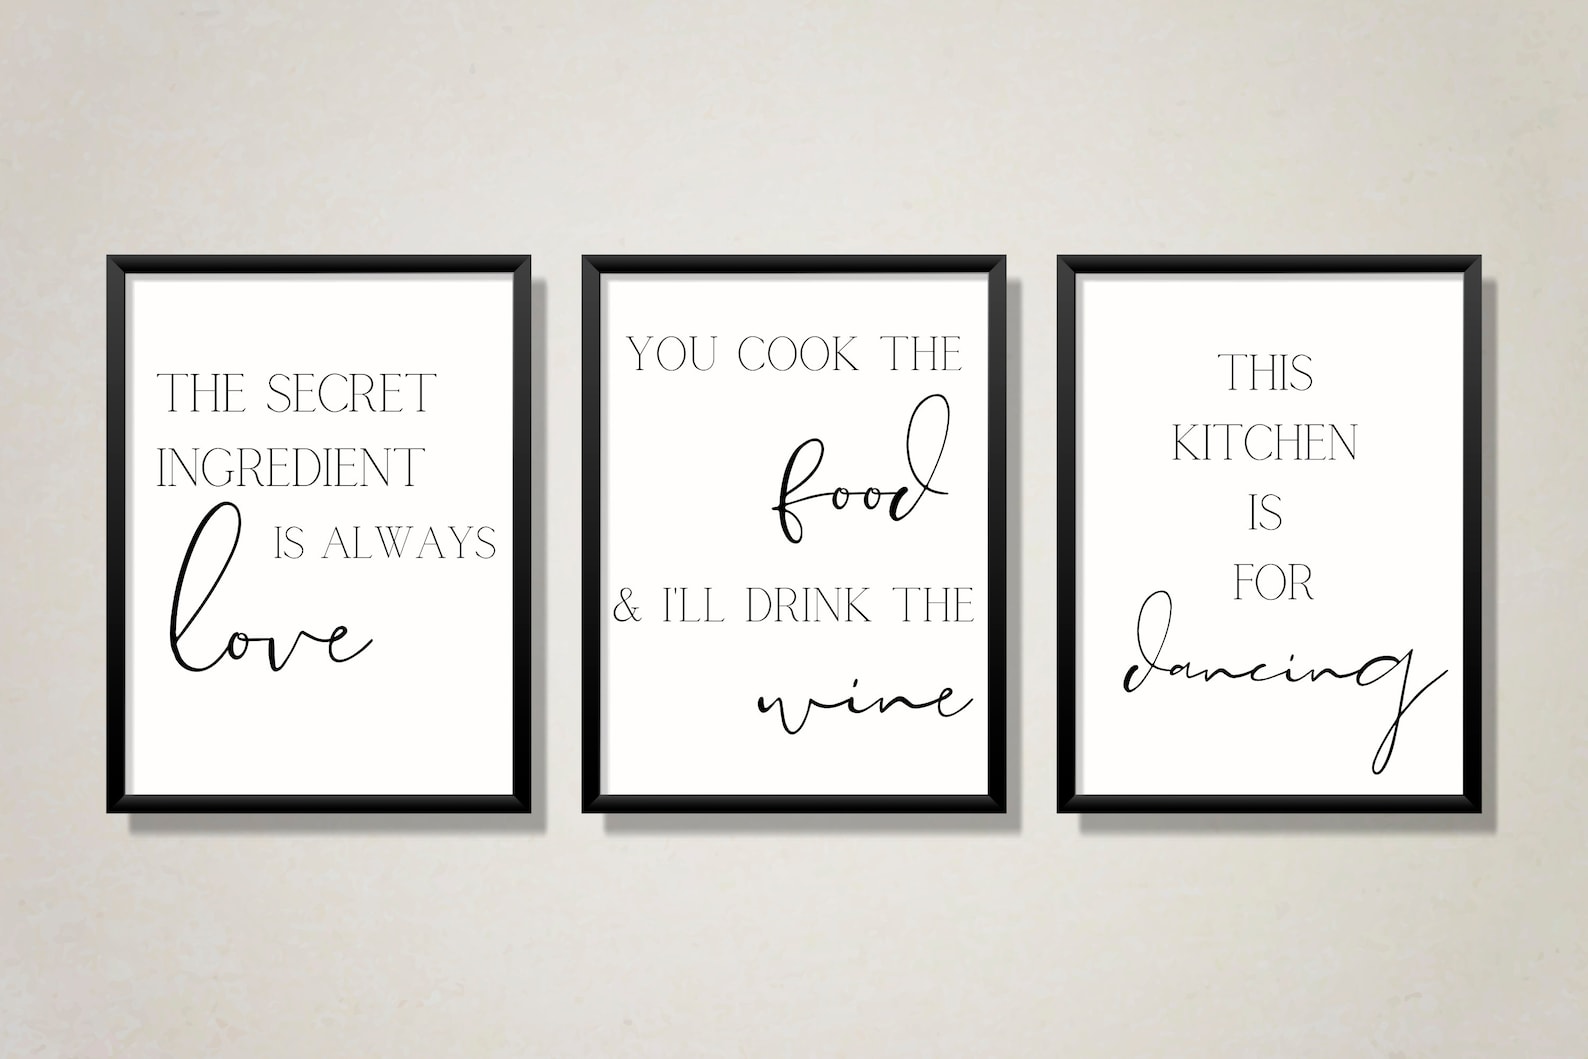 THE SECRET
INGREDIENT
IS ALWAYS
love
YOU COOK THE
food
& I'LL DRINK THE
wine
THIS
KITCHEN
IS
FOR
dancing